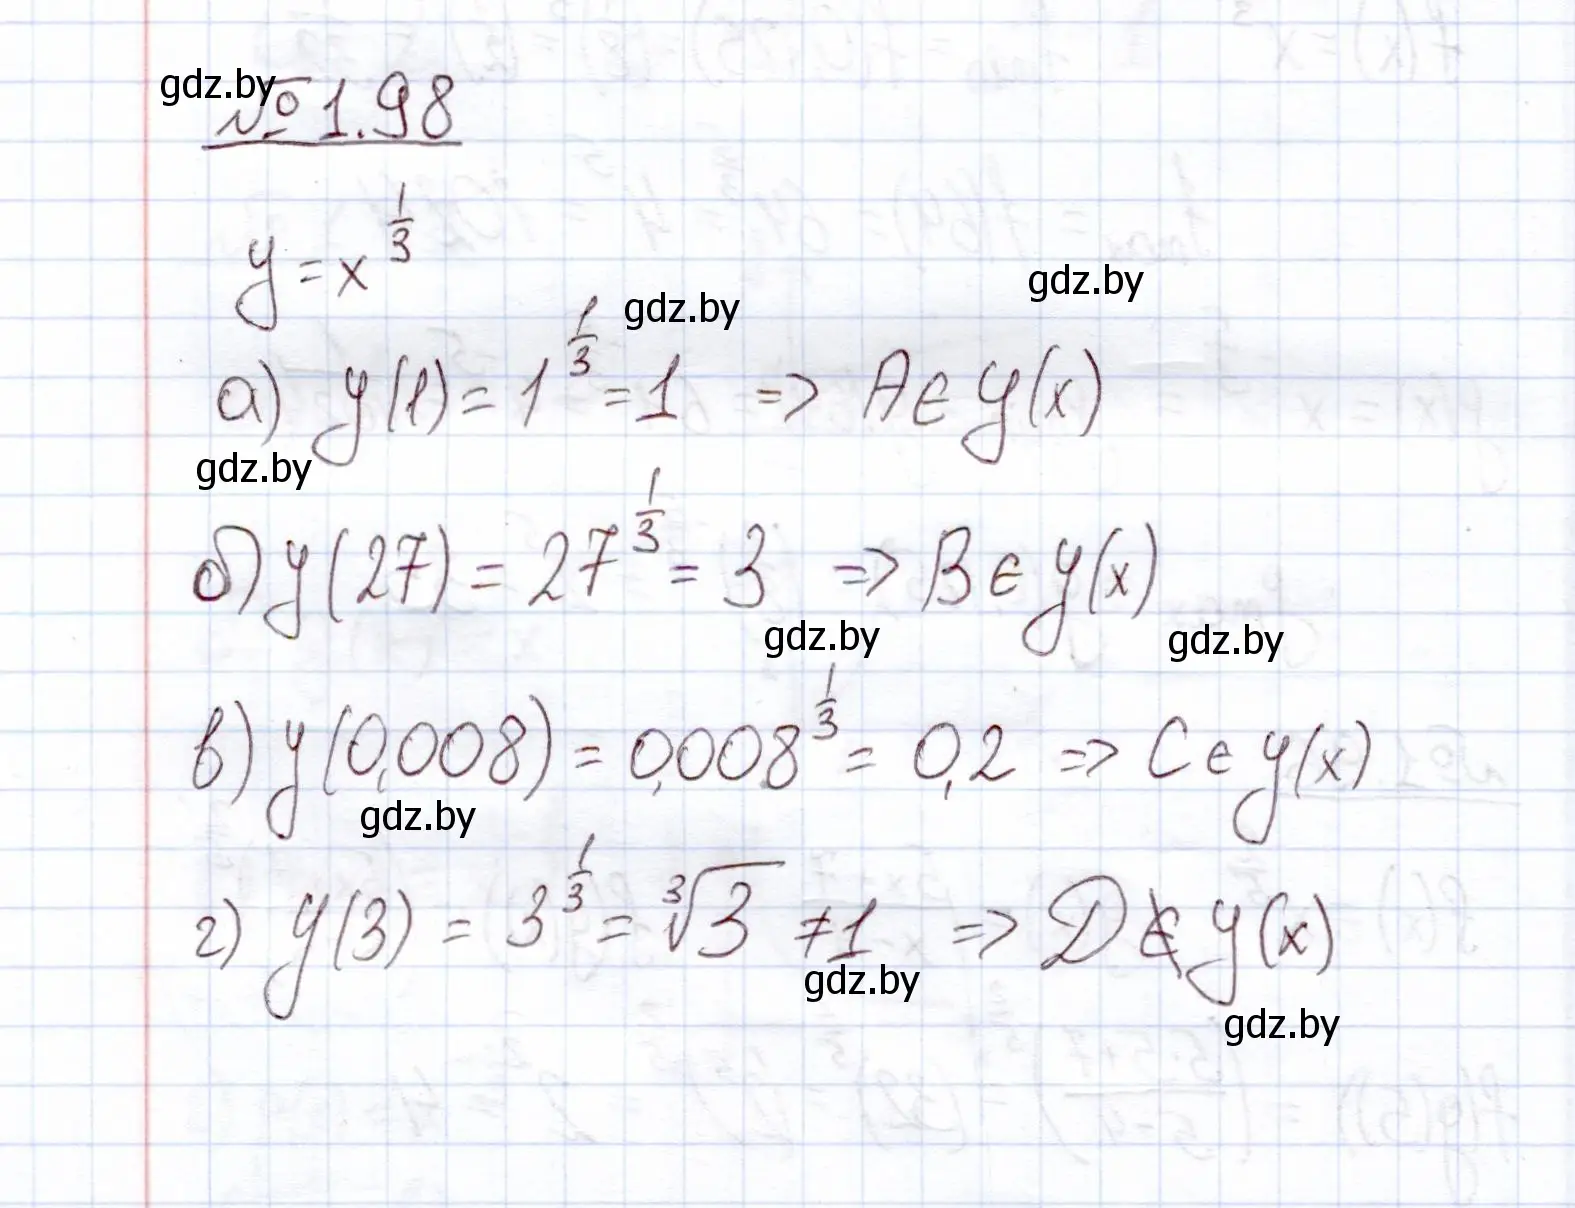 gdz.by
№ 1.98
y = x^{1/3}
gdz.by
gdz.by
а) y(1) = 1^{1/3} = 1 => A ∈ y(x)
gdz.by
б) y(27) = 27^{1/3} = 3 => B ∈ y(x)
gdz.by
gdz.by
в) y(0,008) = 0,008^{1/3} = 0,2 => C ∈ y(x)
gdz.by
г) y(3) = 3^{1/3} = ∛3 ≠ 1 => D ∉ y(x)
gdz.by
gdz.by